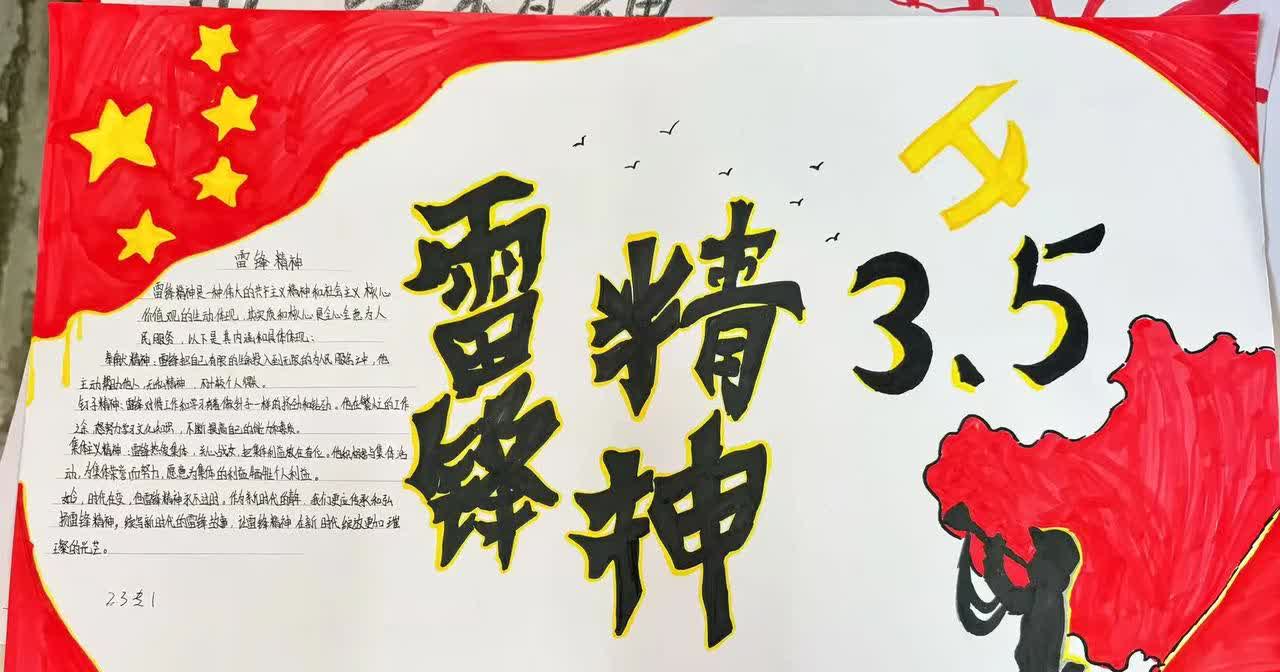 雷锋精神
3.5
雷锋精神
雷锋精神是一种伟大的共产主义精神和社会主义核心
价值观的生动体现,其实质和核心是全心全意为人
民服务,以下是其内涵和具体体现:
奉献精神:雷锋把自己有限的生命投入到无限的为人民服务之中,他
主动帮助他人,无私精神,不计较个人得
钉子精神:雷锋对待工作和学习有着像钉子一样的挤劲和钻劲。他在繁忙的工作
之余,努力学习文化知识,不断提高自己的能力和素质。
集体主义精神:雷锋热爱集体,关心战友,把集体利益放在首位。他积极参与集体活
动,为集体荣誉而努力,愿意为集体的利益牺牲个人利益。
如今,时代在变,但雷锋精神永不过时,在新时代的,我们更应传承和弘
扬雷锋精神,续写新时代的雷锋故事,让雷锋精神在新时代绽放更加璀
璨的光芒。
23麦1